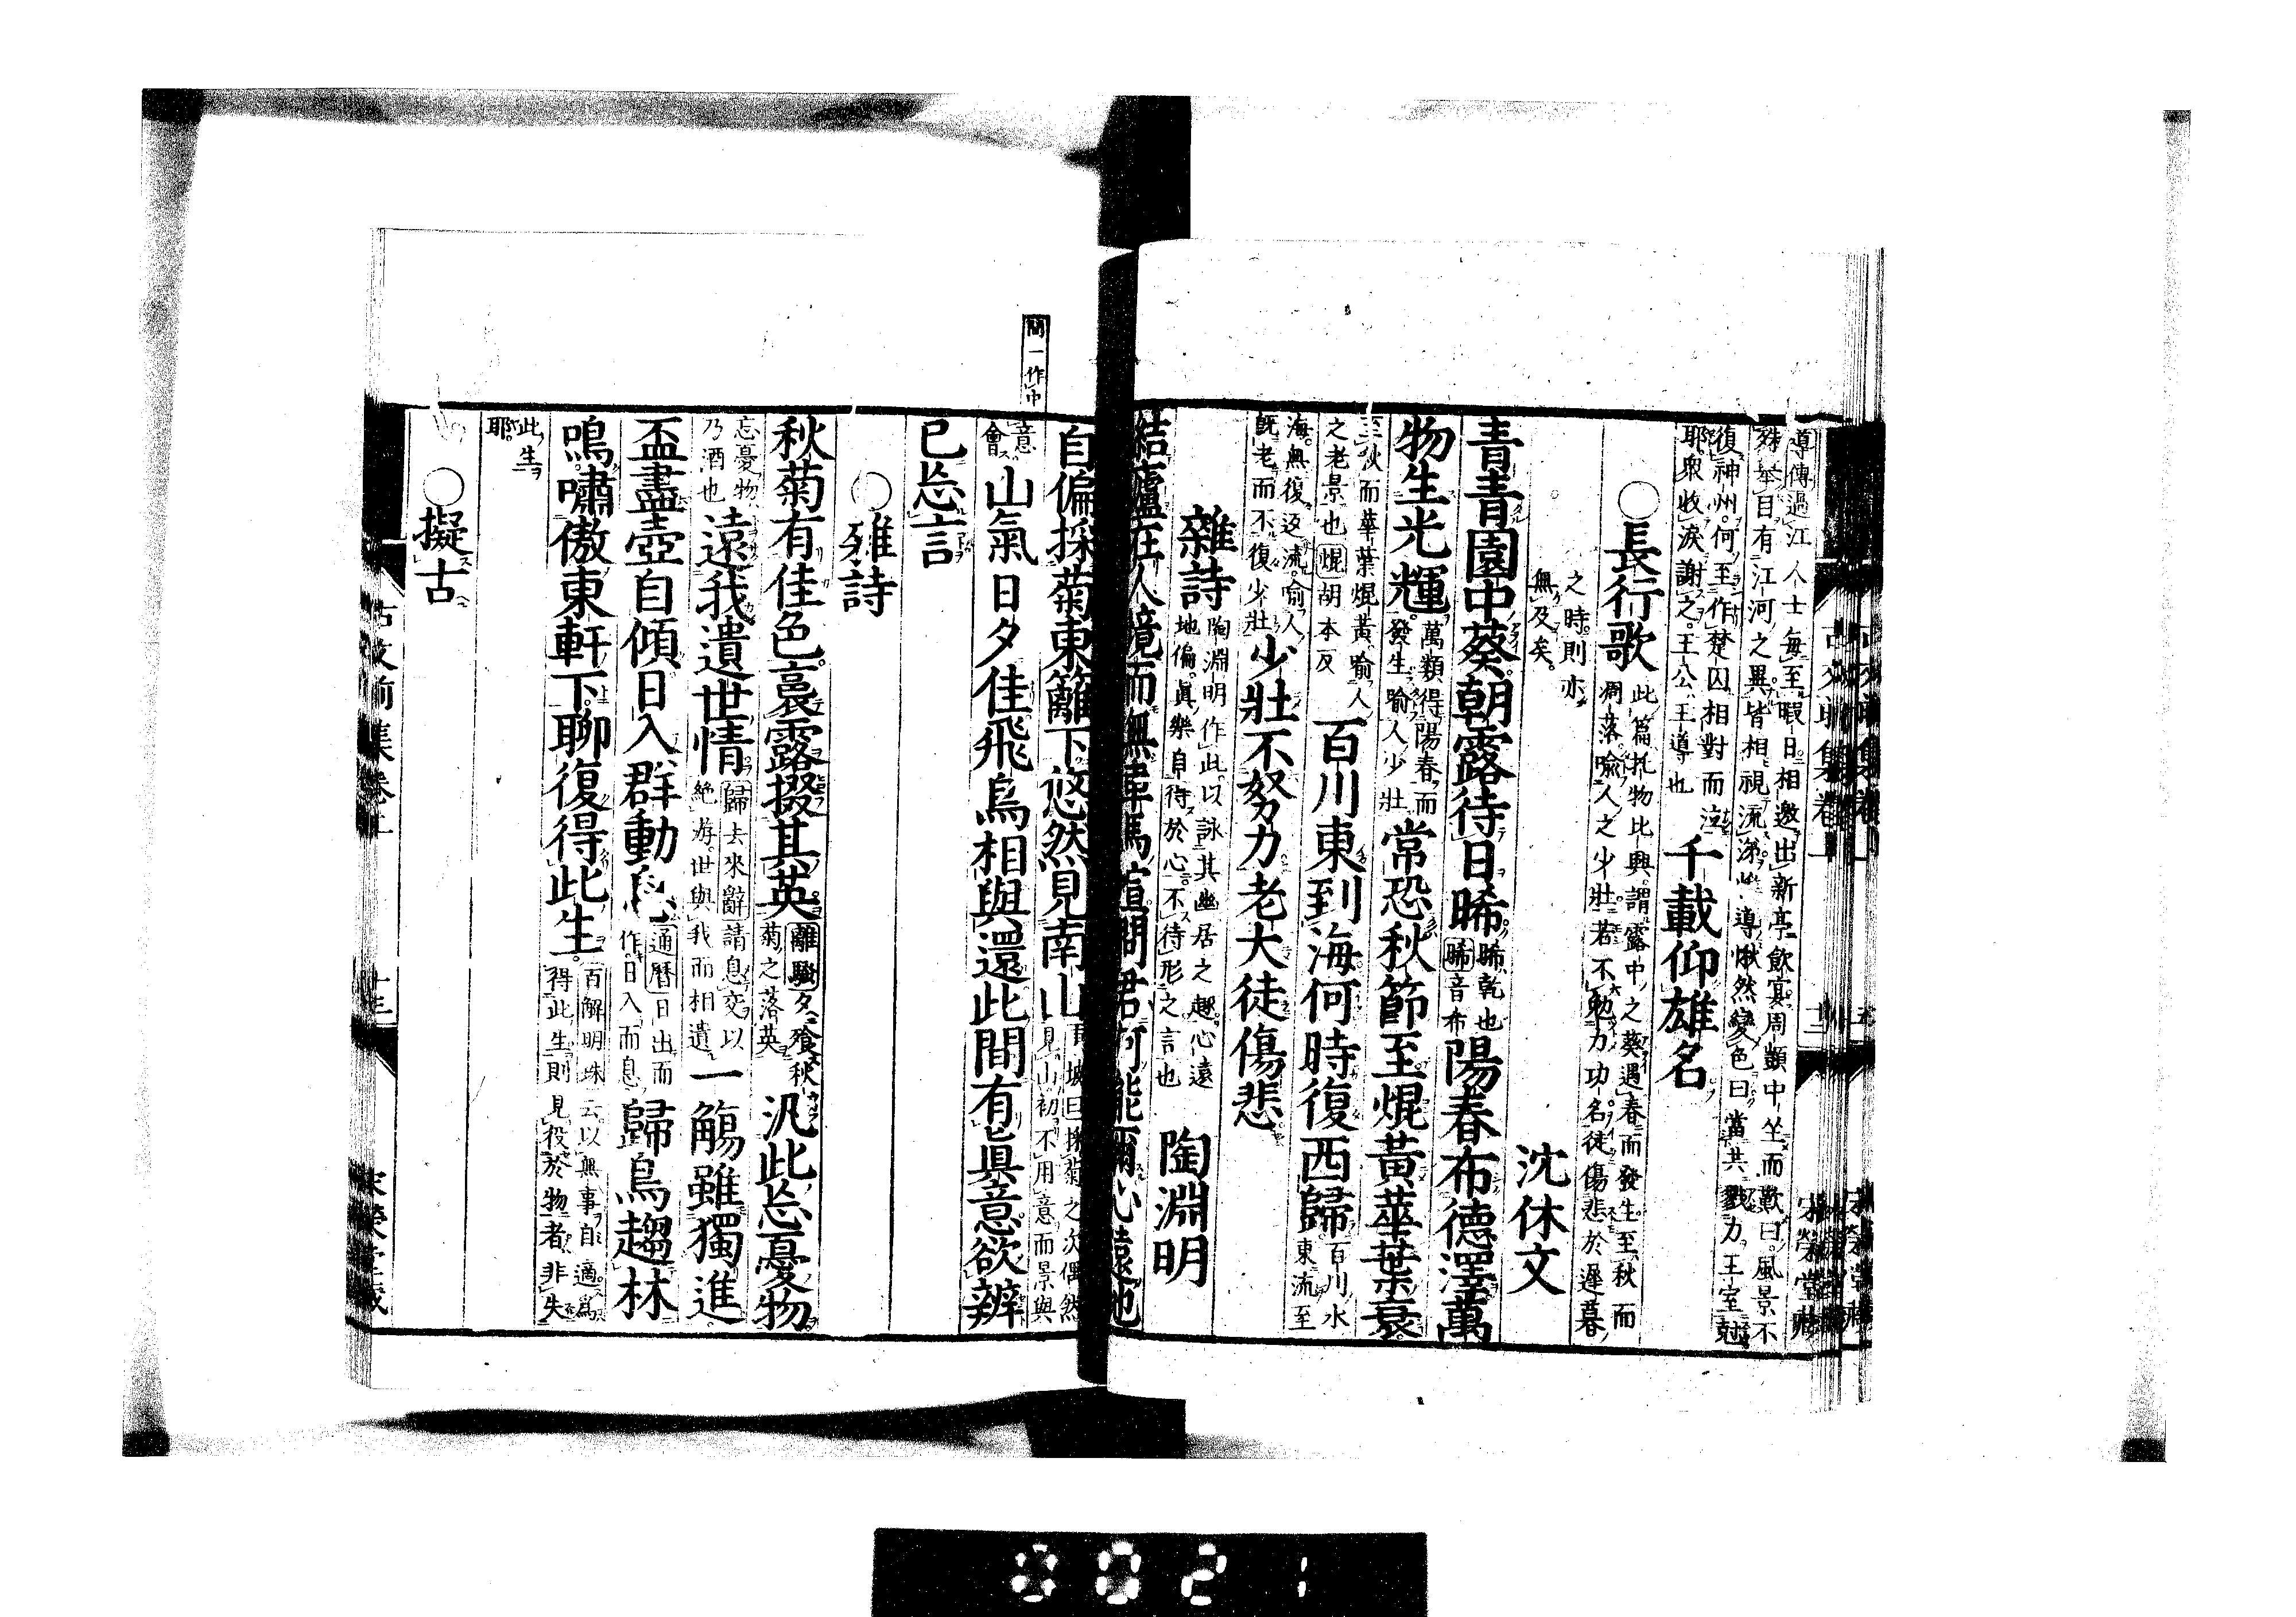 導傳過江人士每至暇日相邀出新亭飲宴周顗中坐而歎曰風景不
殊舉目有江河之異皆相視流涕惟導愀然變色曰當共戮力王室尅
復神州何至作楚囚相對而泣
耶眾收淚謝之王公王導也
千載仰雄名
○長行歌
此篇托物比興謂露中之葵遇春而發生至秋而
凋落喻人之少壯若不勉力功名徒傷悲於遲暮
之時則亦
無及矣
沈休文
青青園中葵朝露待日晞
晞乾也
晞音布
陽春布德澤萬
物生光輝
萬類得陽春而
發生喻人少壯
常恐秋節至焜黃華葉衰
至秋而華葉焜黃喻人
之老景也焜胡本反
百川東到海何時復西歸
百川水
東流至
海無復返流喻人
既老而不復少壯
少壯不努力老大徒傷悲
雜詩
陶淵明作此以詠其幽居之趣心遠
地偏真樂自待於心不待形之言也
陶淵明
結廬在人境而無車馬喧問君何能爾心遠地
自偏採菊東籬下悠然見南山
坡曰採菊之次偶然
見山初不用意而景與
意
會
山氣日夕佳飛鳥相與還此間有眞意欲辨
已忘言
間一作中
○雜詩
秋菊有佳色裛露掇其英
離騷夕飡秋
菊之落英
汎此忘憂物
忘憂物
乃酒也
遠我遺世情
歸去來辭請息交以
絶游世與我而相遺
一觴雖獨進
盃盡壺自傾日入群動息
通曆日出而
作日入而息
歸鳥趨林
鳴嘯傲東軒下聊復得此生
百解明珠云以無事自適為
得此生則見役於物者非失
此生
耶
○擬古
古文前集卷上
十三
宋榮堂藏